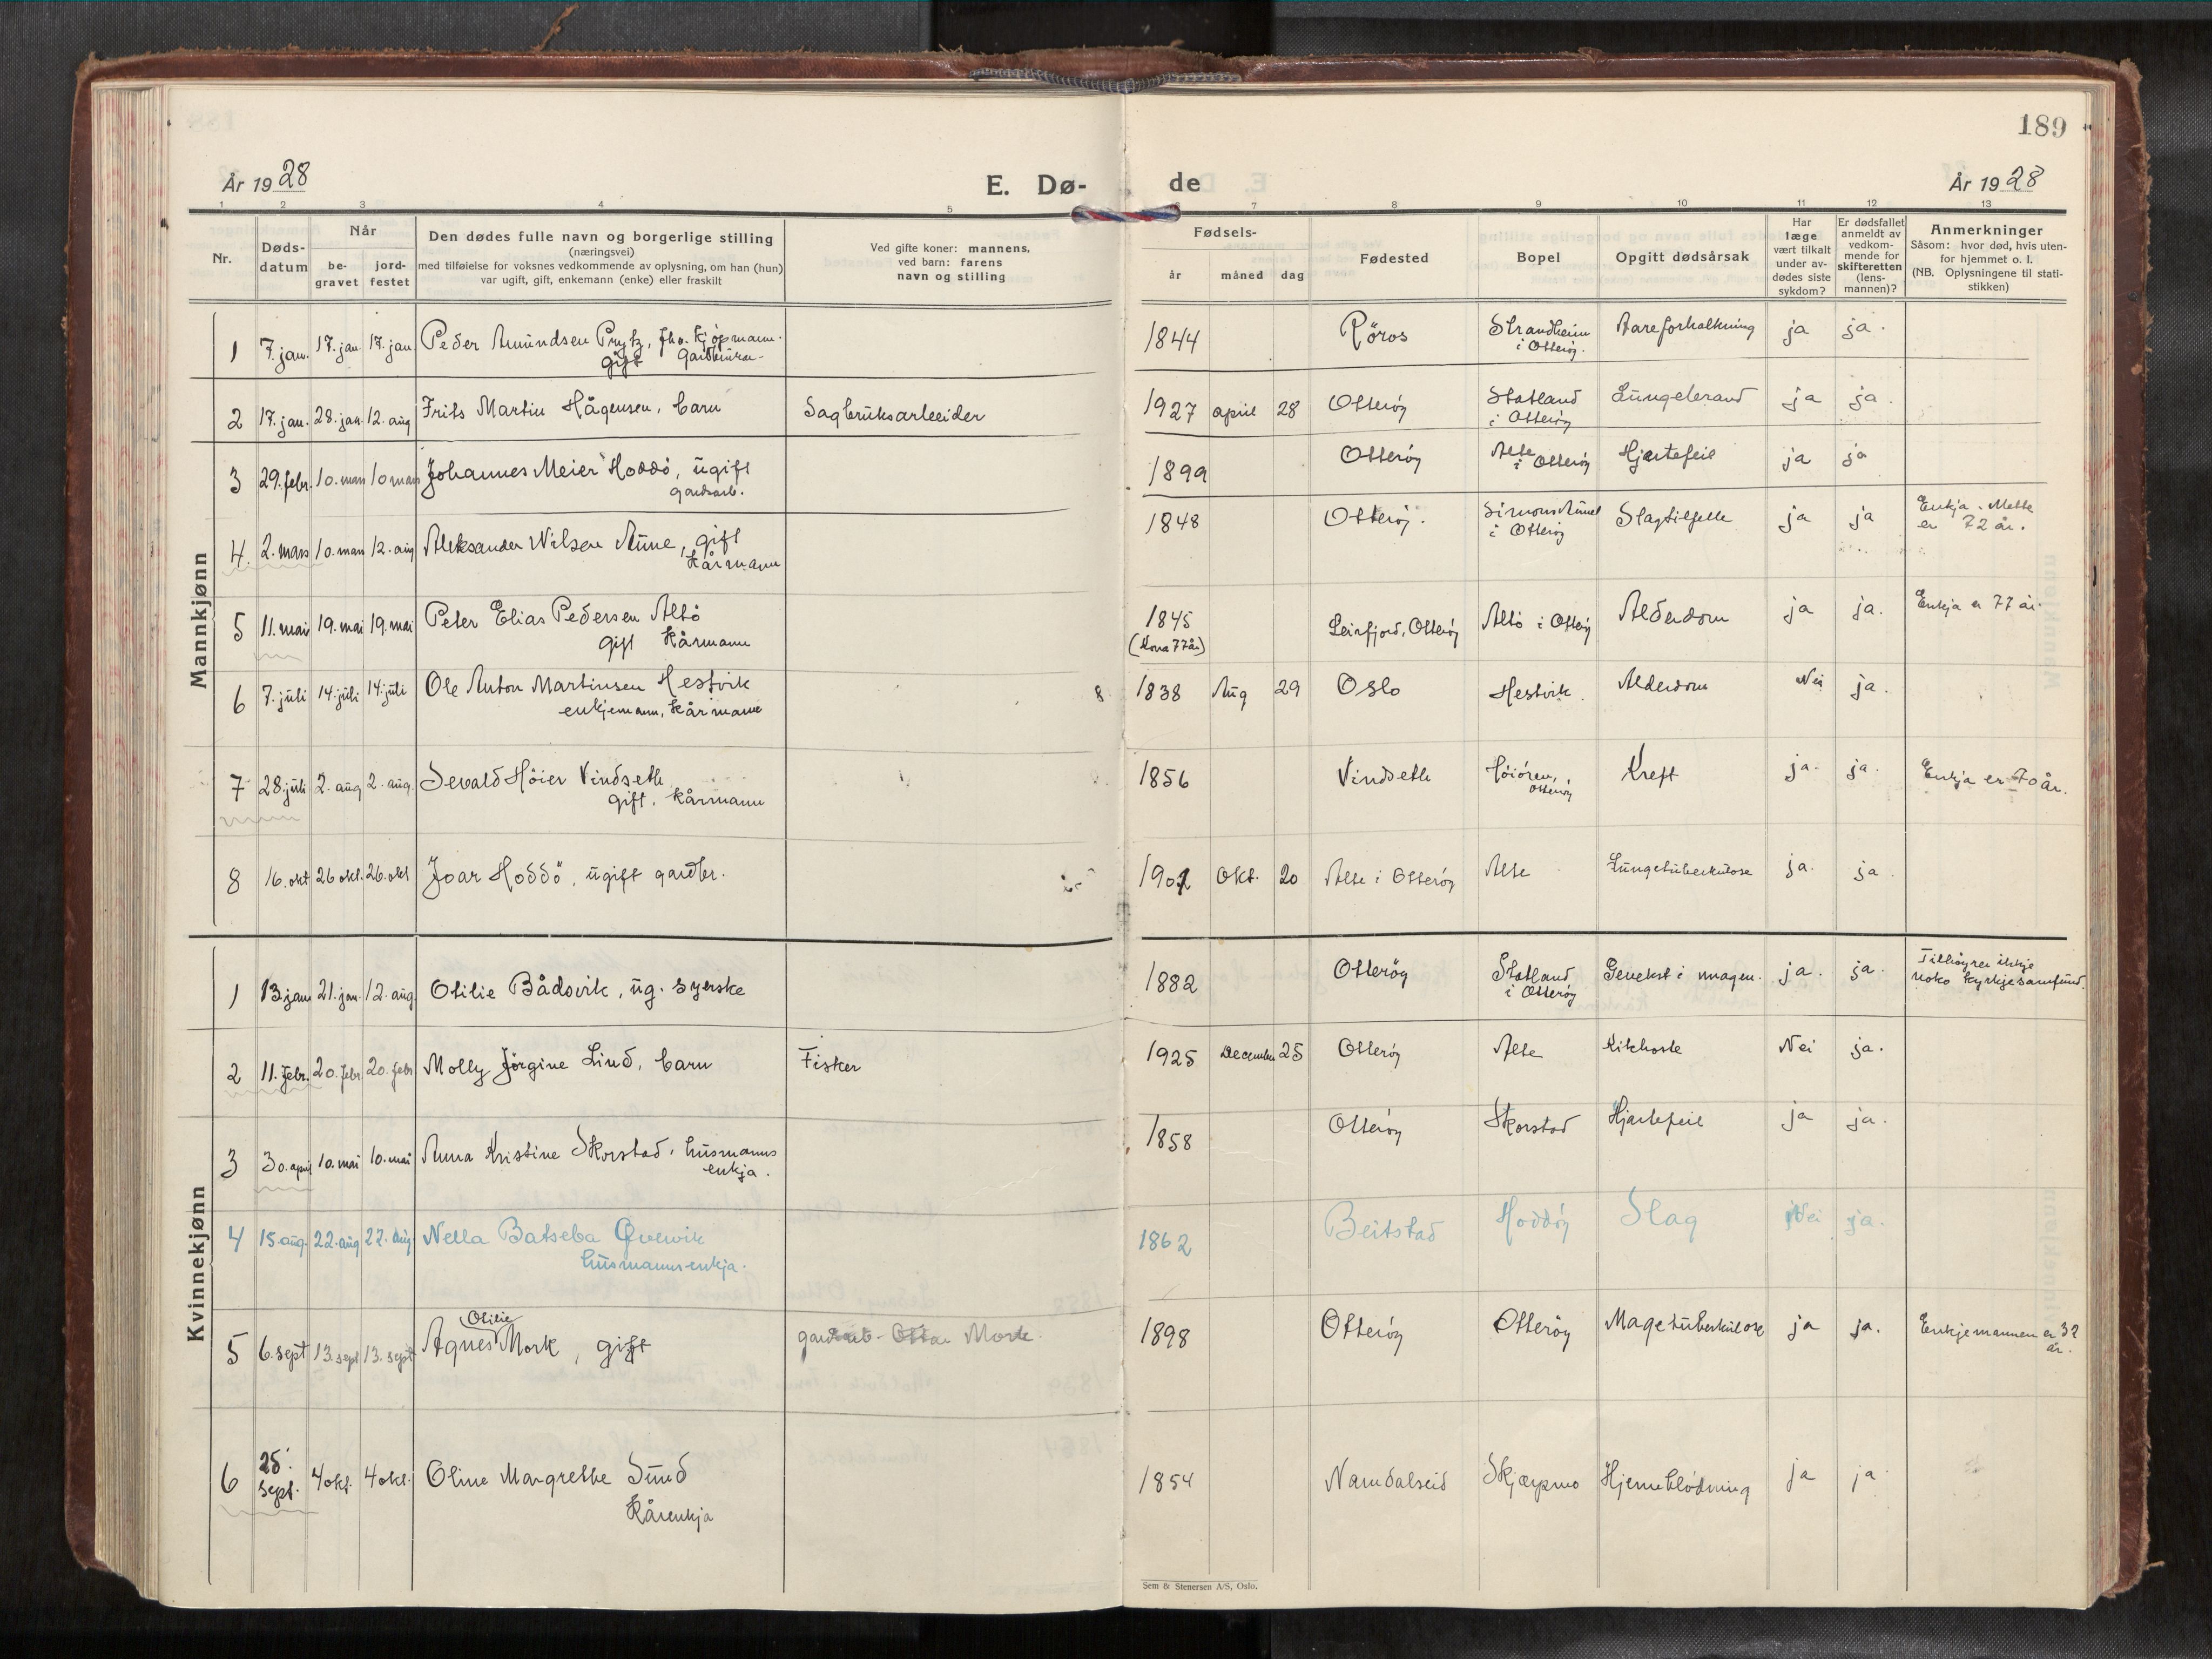 189
År 1928
E. Dø-
de
År 1928
1 2 3 4 5 6 7 8 9 10 11 12 13
Nr.
Døds-
datum
Når
be-
gravet
jord-
festet
Den dødes fulle navn og borgerlige stilling
(næringsvei)
med tilføielse for voksnes vedkommende av oplysning, om han (hun)
var ugift, gift, enkemann (enke) eller fraskilt
Ved gifte koner: mannens,
ved barn: farens
navn og stilling
Fødsels-
år måned dag
Fødested
Bopel
Opgitt dødsårsak
Har
læge
vært tilkalt
under av-
dødes siste
sykdom?
Er dødsfallet
anmeldt av
vedkom-
mende for
skifteretten
(lens-
mannen)?
Anmerkninger
Såsom: hvor død, hvis uten-
for hjemmet o. l.
(NB. Oplysningene til stati-
stikken)
Mannkjønn
1 7. jan. 17. jan 17. jan Peder Amundsen Prytz, fhv. kjøpmann.
gift
1844 Röros Strandheim
i Otteröy. Aareforkalkning ja ja.
2 17. jan. 28. jan. 12. aug Frits Martin Hågensen, barn Sagbruksarbeider 1927 april 28 Otteröy Statland
i Otteröy Lungebrand ja ja.
3 29. febr. 10. mars 10 mars Johannes Meier Hoddö, ugift
gardsarb.
1899 Otteröy Alte
i Otteröy Hjertefeil ja ja
4. 2. mars 10. mars 12. aug Aleksander Nilsen Aune, gift
Kårmann
1848 Otteröy. i Otteröy Slagtilfelle ja ja Enkja. Mette
er 72 år.
5 11. mai 19. mai 19. mai Peter Elias Pedersen Altö
gift Kårmann
1845
(Kona 77 år)
Leirfjord, Otteröy Altö i Otteröy Alderdom ja ja. Enkja er 77 år.
6 7. juli 14. juli 14. juli Ole Anton Martinsen Hestvik
enkjemann, Kårmann
8 1838 Aug 29 Oslo Hestvik. Alderdom Nei ja.
7 28. juli 2. aug 2. aug. Sevald Höier Vindseth
gift. Kårmann
1856 Vindseth Höiören,
Otteröy Kreft ja. ja. Enkja er 70 år.
8 16. okt 26 okt. 26. okt Joar Hoddö, ugift gardbr.
1901 Okt. 20 Alte i Otteröy Alte Lungetuberkulose ja. ja.
Kvinnekjønn
1 13 jan 21. jan. 12. aug. Otilie Bådsvik, ug. syerske
1882 Otteröy Statland
i Otteröy Gevekst i magen. ja. ja. Tilhöyrer ikkje
noko kyrkjesamfund.
2 11. febr. 20. febr 20. febr Molly Jörgine Lind, barn Fisker 1925 December 25 Otteröy Alte Kikhoste Nei ja.
3 30. april 10. mai 10. mai Anna Kristine Skorstad, husmanns
enkja.
1858 Otteröy Skorstad Hjertefeil ja ja.
4 15. aug. 22. aug 22. aug Nella Batseba Qvervik
husmannsenkja.
1862 Beitstad Hoddöy Slag Nei ja.
Otilie
5 6. sept 13. sept 13. sept Agnes Mork, gift gardarb - Ottar Mork. 1898 Otteröy Otteröy Magetuberkulose ja ja. Enkjemannen er 32
år.
6 25.
sept. 4 okt. 4 okt. Oline Margrethe Sund
Kårenkja
1854 Namdalseid Skjærpmo Hjerneblödning ja ja.
Sem & Stenersen A/S, Oslo.